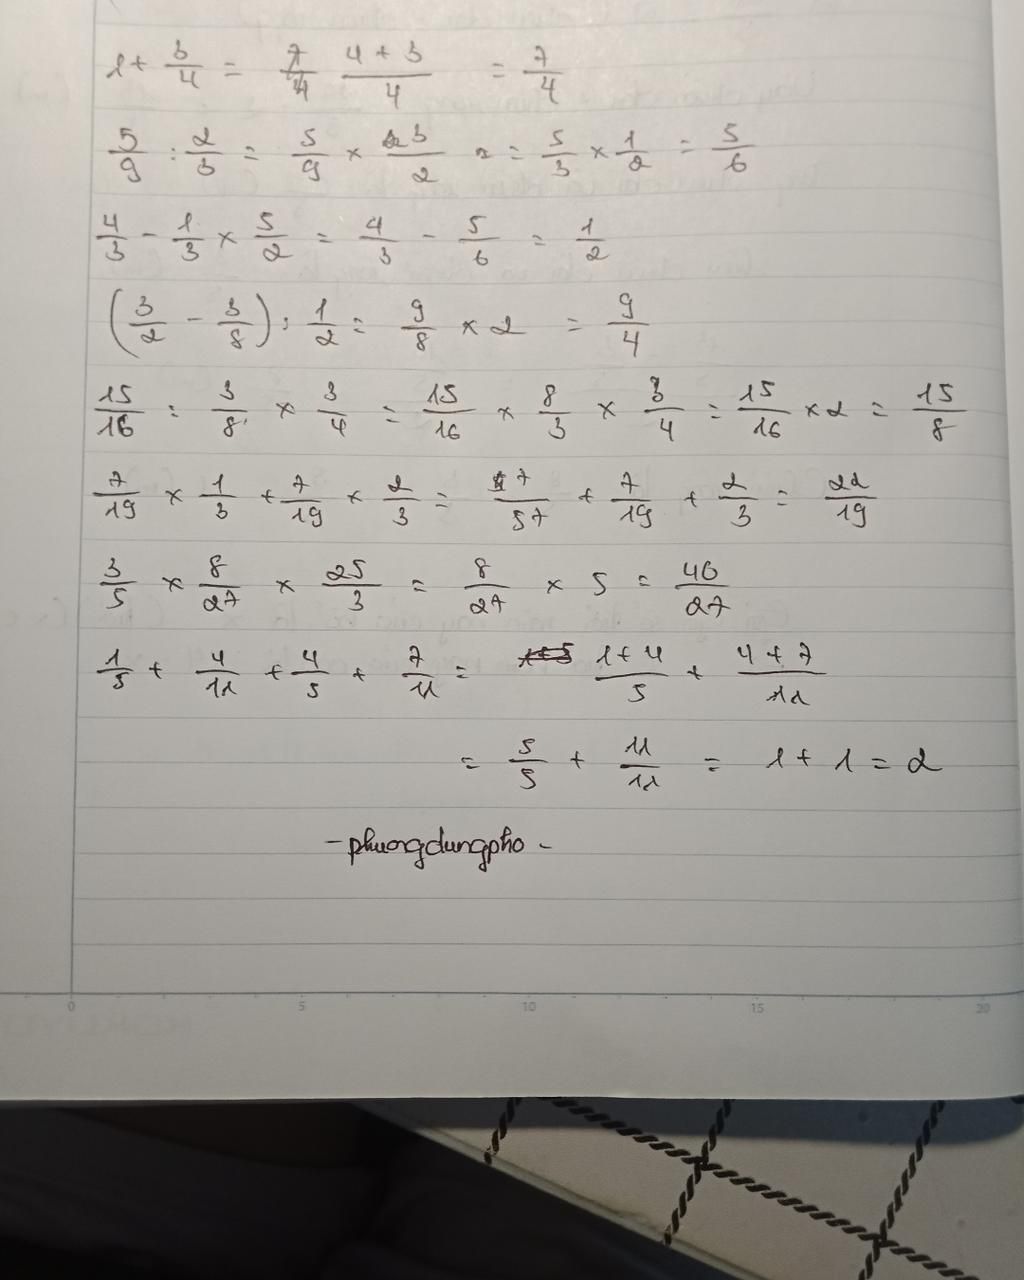 1 + 3/4 = 7/4 (4 + 3)/4 = 7/4
5/9 : 2/3 = 5/9 × 3/2 = 5/3 × 1/2 = 5/6
4/3 - 1/3 × 5/2 = 4/3 - 5/6 = 1/2
(3/2 - 3/8) : 1/2 = 9/8 × 2 = 9/4
15/16 : 3/8 × 3/4 = 15/16 × 8/3 × 3/4 = 15/16 × 2 = 15/8
7/19 × 1/3 + 7/19 × 2/3 = 7/57 + 7/19 + 2/3 = 22/19
3/5 × 8/27 × 25/3 = 8/27 × 5 = 40/27
1/5 + 4/11 + 4/5 + 7/11 = (1 + 4)/5 + (4 + 7)/11
= 5/5 + 11/11 = 1 + 1 = 2
- phuongdungpho -
0 5 10 15 20